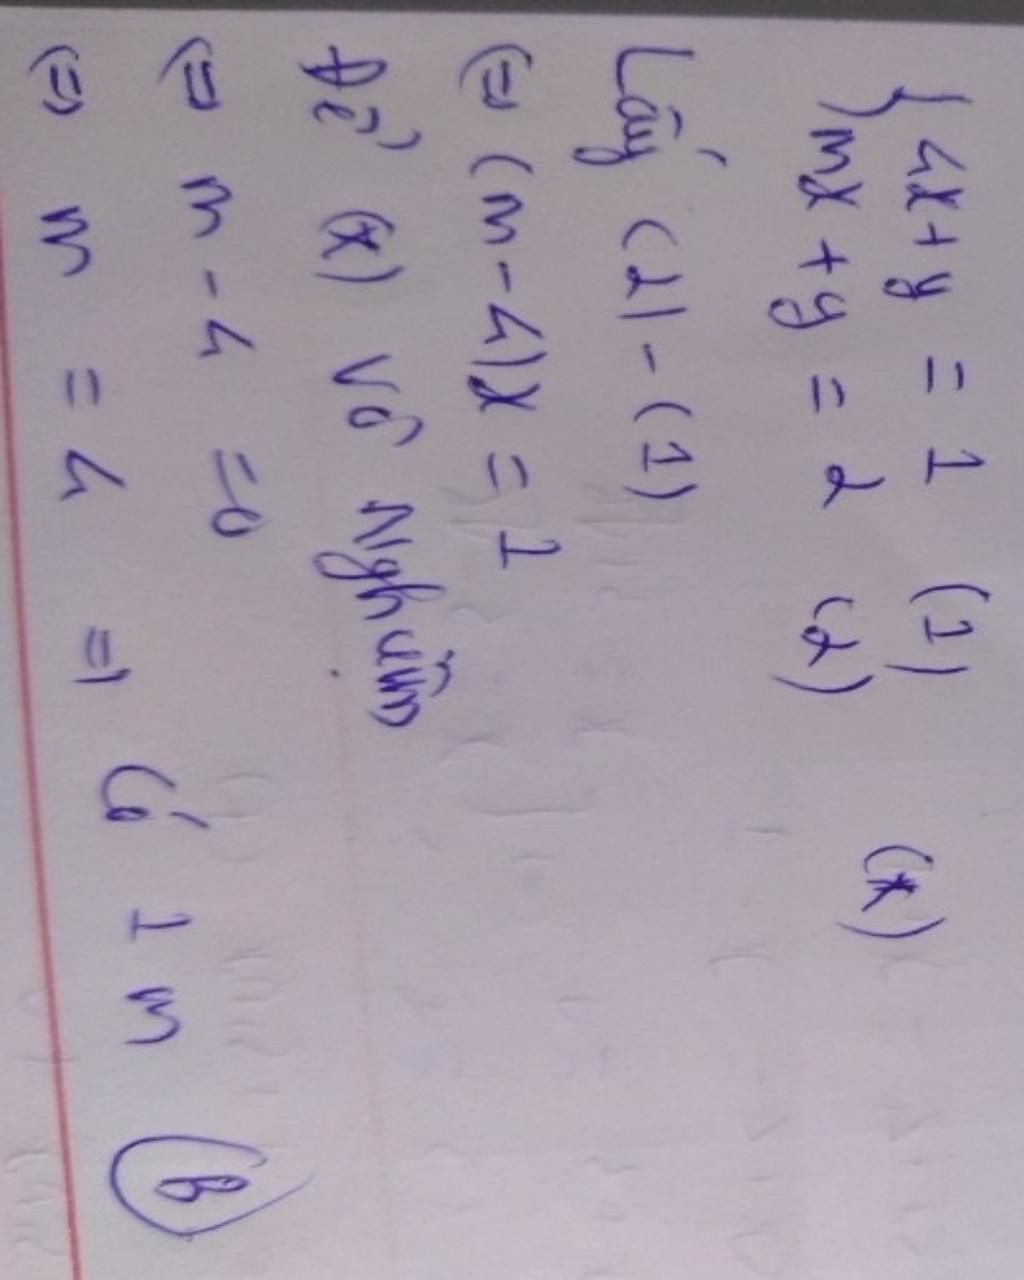 { 4x + y = 1 (1)
{ mx + y = 2 (2) (*)
Lấy (2) - (1)
(=) (m - 4)x = 1
Để (*) vô nghiệm
(=) m - 4 = 0
(=) m = 4 => Có 1 m (B)